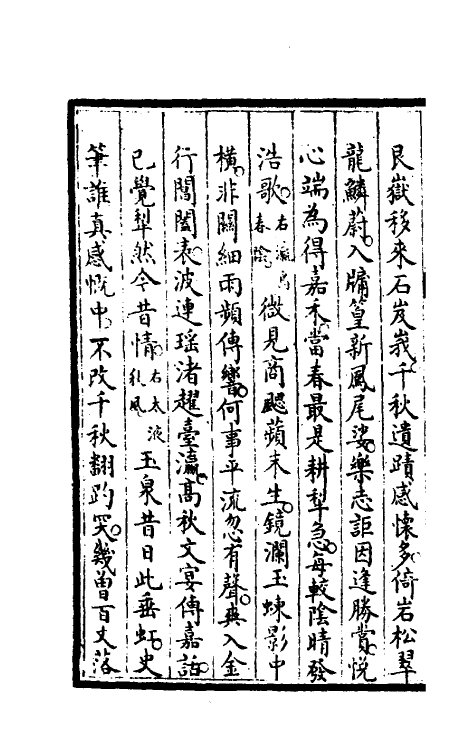 艮嶽移來石岌峩千秋遺蹟感懷多倚岩松翠
龍鱗蔚入牗篁新鳳尾娑樂志詎因逢勝賞悅
心端為得嘉禾當春最是耕犁急每較陰晴發
浩歌右瀛島春陰微見商飔蘋末生鏡瀾玉蝀影中
橫非關細雨頻傳響何事平流忽有聲爽入金
行閶闔表波連瑶渚趯臺瀛高秋文宴傳嘉話
已覺犁然今昔情右太液秋風玉泉昔日此垂虹史
筆誰真感慨中不改千秋翻趵突幾曾百丈落